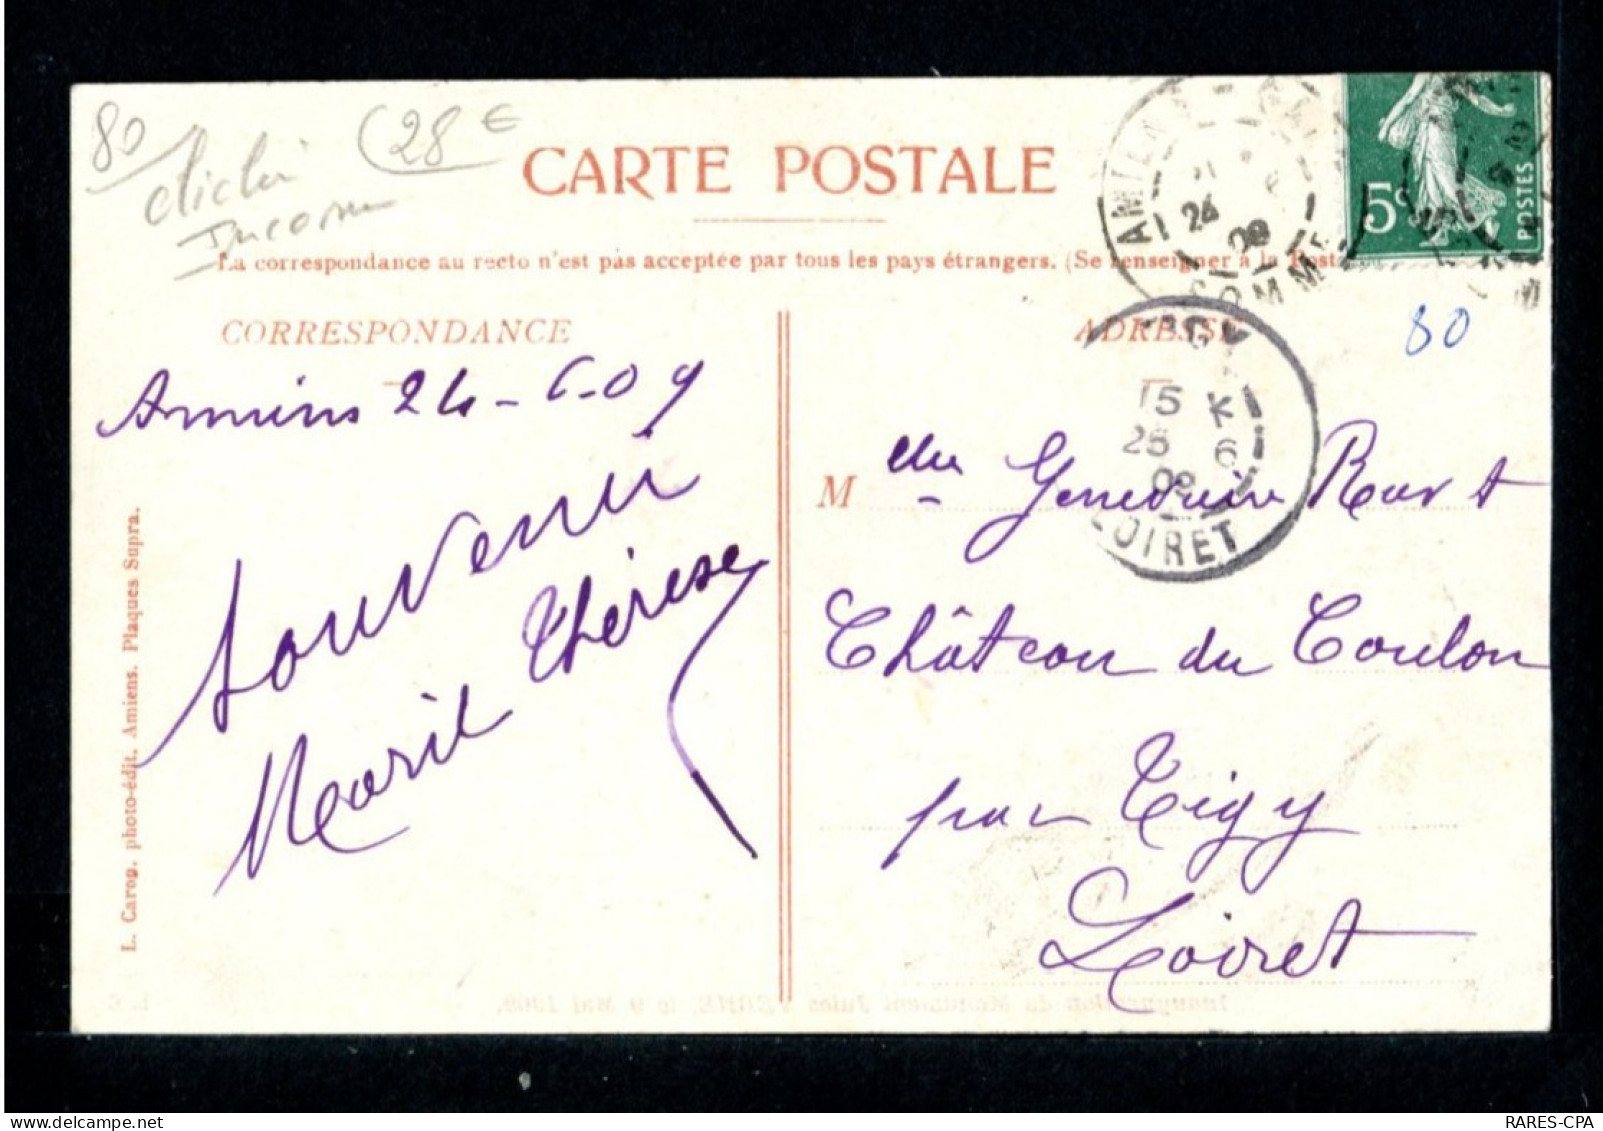 80
cliché
Inconnu
28 €
CARTE POSTALE
La correspondance au recto n'est pas acceptée par tous les pays étrangers. (Se renseigner à la Poste
CORRESPONDANCE
ADRESSE
AMIENS
24
SOMME
5c
POSTES
80
Amiens 24-6-09
Souvenir
Marie Thérèse
15 K
25 6
09
LOIRET
M elle Geneviève
Château du Coulon
par Tigy
Loiret
L. Caron. photo-édit. Amiens. Plaques Supra.
Inauguration du Monument Jules VERNE, le 9 Mai 1909.
L. C
RARES-CPA